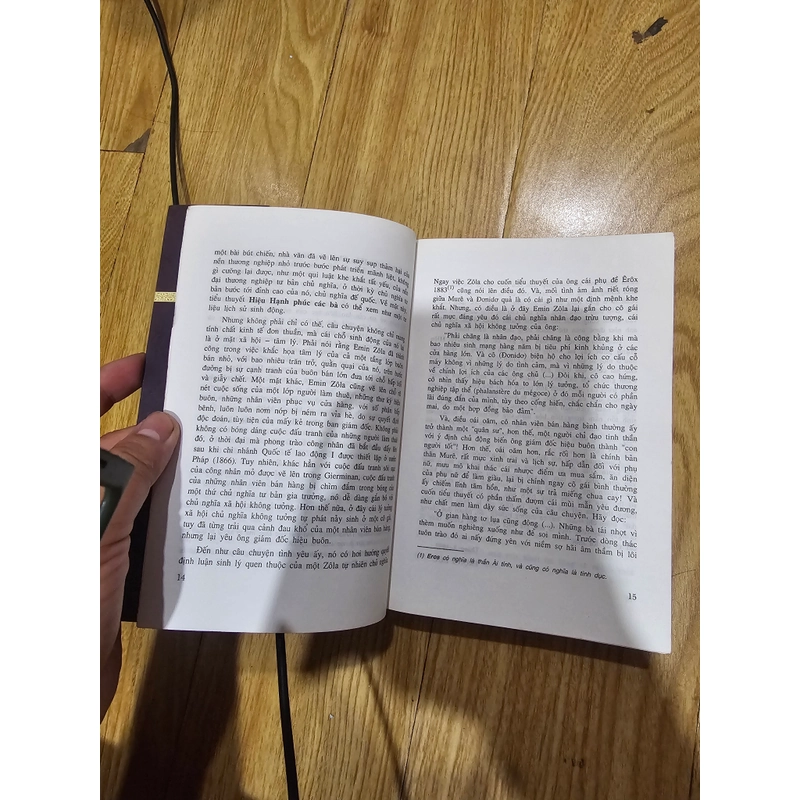 một bài bút chiến, nhà văn đã vẽ lên sự suy sụp thảm hại của
nền thương nghiệp nhỏ trước bước phát triển mãnh liệt, không
gì cưỡng lại được, như một qui luật khe khắt tất yếu, của nền
đại thương nghiệp tư bản chủ nghĩa, ở thời kỳ chủ nghĩa tư
bản bước tới đỉnh cao của nó, chủ nghĩa đế quốc. Về mặt này,
tiểu thuyết Hiệu Hạnh phúc các bà có thể xem như một tư
liệu lịch sử sinh động.
Nhưng không phải chỉ có thế, câu chuyện không chỉ mang
tính chất kinh tế đơn thuần, mà cái chỗ sinh động của nó lại
là ở mặt xã hội – tâm lý. Phải nói rằng Emin Zôla đã thành
công trong việc khắc họa tâm lý của cả một tầng lớp buôn
bán nhỏ, với bao nhiêu trăn trở, quằn quại của nó, trên con
đường bị sự cạnh tranh của buôn bán lớn đưa tới chỗ hấp hối
và giẫy chết. Một mặt khác, Emin Zôla cũng vẽ lên chi
nét cuộc sống của một lớp người làm thuê, những thư ký bán
buôn, những nhân viên phục vụ cửa hàng, với số phận bấp
bênh, luôn luôn nơm nớp bị ném ra vỉa hè, do sự quyết định
độc đoán, tùy tiện của mấy kẻ trong ban giám đốc. Không
có bóng dáng cuộc đấu tranh của những người làm thuê
đó, ở thời đại mà phong trào công nhân đã bắt đầu dấy lên
sau khi chi nhánh Quốc tế lao động I được thiết lập ở nước
Pháp (1866). Tuy nhiên, khác hẳn với cuộc đấu tranh sôi
của công nhân mỏ được vẽ lên trong Gierminan, cuộc đấu
của những nhân viên bán hàng bị chìm đắm trong bóng
một thứ chủ nghĩa tư bản gia trưởng, nó dễ dàng gắn bó với
chủ nghĩa xã hội không tưởng. Hơn thế nữa, ở đây cái lý tưởng
xã hội chủ nghĩa không tưởng tự phát nảy sinh ở một cô gái,
tuy đã từng trải qua cảnh đau khổ của một nhân viên bán hàng
nhưng lại yêu ông giám đốc hiệu buôn.
Đến như câu chuyện tình yêu ấy, nó có hơi hướng quyết
định luận sinh lý quen thuộc của một Zôla tự nhiên chủ nghĩa.
14
Ngay việc Zôla cho cuốn tiểu thuyết của ông cái phụ đề Êrôx
1883(1) cũng nói lên điều đó. Và, mối tình âm ỉ mà riết róng
giữa Murê và Đơnidơ quả là có cái gì như một định mệnh khe
khắt. Nhưng, có điều là ở đây Emin Zôla lại gắn cho cô gái
rất mực đáng yêu đó cái chủ nghĩa nhân đạo trừu tượng, cái
chủ nghĩa xã hội không tưởng của ông:
"Phải chăng là nhân đạo, phải chăng là công bằng khi mà
bao nhiêu sinh mạng hàng năm bị tiêu phí kinh khủng ở các
cửa hàng lớn. Và cô (Đơnidơ) biện hộ cho lợi ích cơ cấu cỗ
máy không vì những lý do tình cảm, mà vì những lý do thuộc
về chính lợi ích của các ông chủ (...) Đôi khi, cô cao hứng,
cô nhìn thấy hiệu bách hóa to lớn lý tưởng, tổ chức thương
nghiệp tập thể (phalanstère du négoce) ở đó mỗi người có phần
chính đáng của mình, tùy theo cống hiến, chắc chắn cho ngày
mai, do một hợp đồng bảo đảm".
Và, điều oái oăm, cô nhân viên bán hàng bình thường ấy
trở thành một "quân sư", hơn thế, một người chỉ đạo tinh thần
với ý định chủ động biến ông giám đốc hiệu buôn thành "con
người tốt"! Hơn thế, oái oăm hơn, rắc rối hơn là chính bản
thân Murê, rất mực xinh trai và lịch sự, hấp dẫn đối với phụ
nữ, mưu mô khai thác cái nhược điểm ưa mua sắm, ăn diện
của phụ nữ để làm giàu, lại bị chính ngay cô gái bình thường
ấy chiếm lĩnh tâm hồn, như một sự trả miếng chua cay! Và
cuốn tiểu thuyết có phần thấm đượm cái mùi mẫn yêu đương,
như chất men làm dậy sức sống của câu chuyện. Hãy đọc:
"Ở gian hàng tơ lụa cũng động (...). Những bà tai nhợt vì
thèm muốn nghiêng xuống như để soi mình. Trước dòng thác
tuôn trào đó ai nấy đứng yên với niềm sợ hãi âm thầm bị lôi
(1) Eros có nghĩa là thần Ái tình, và cũng có nghĩa là tình dục.
15